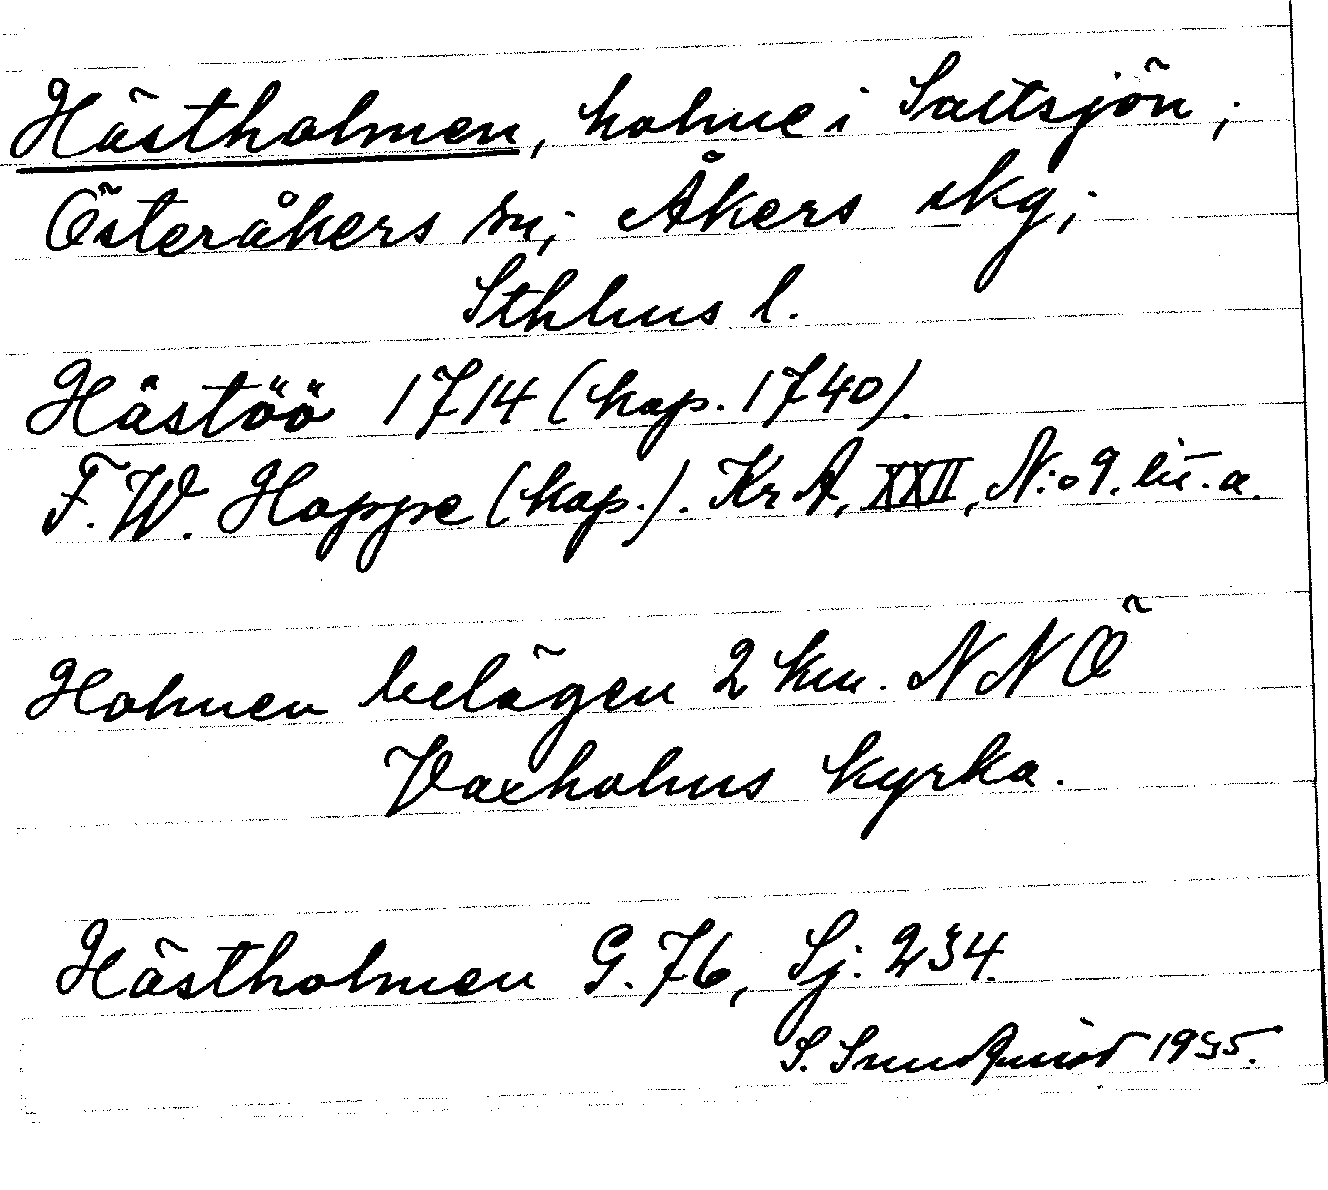 Hästholmen, holme i Saltsjön;
Österåkers sn; Åkers skg;
Sthlms l.
Hästöö 1714 (kop. 1740).
F. W. Hoppe (kop.). KrA, XXII, N:o 9. lit. a.
Holmen belägen 2 km. NNÖ
Vaxholms kyrka.
Hästholmen G. 76, Sj. 234.
S. Sundqvist 1935.